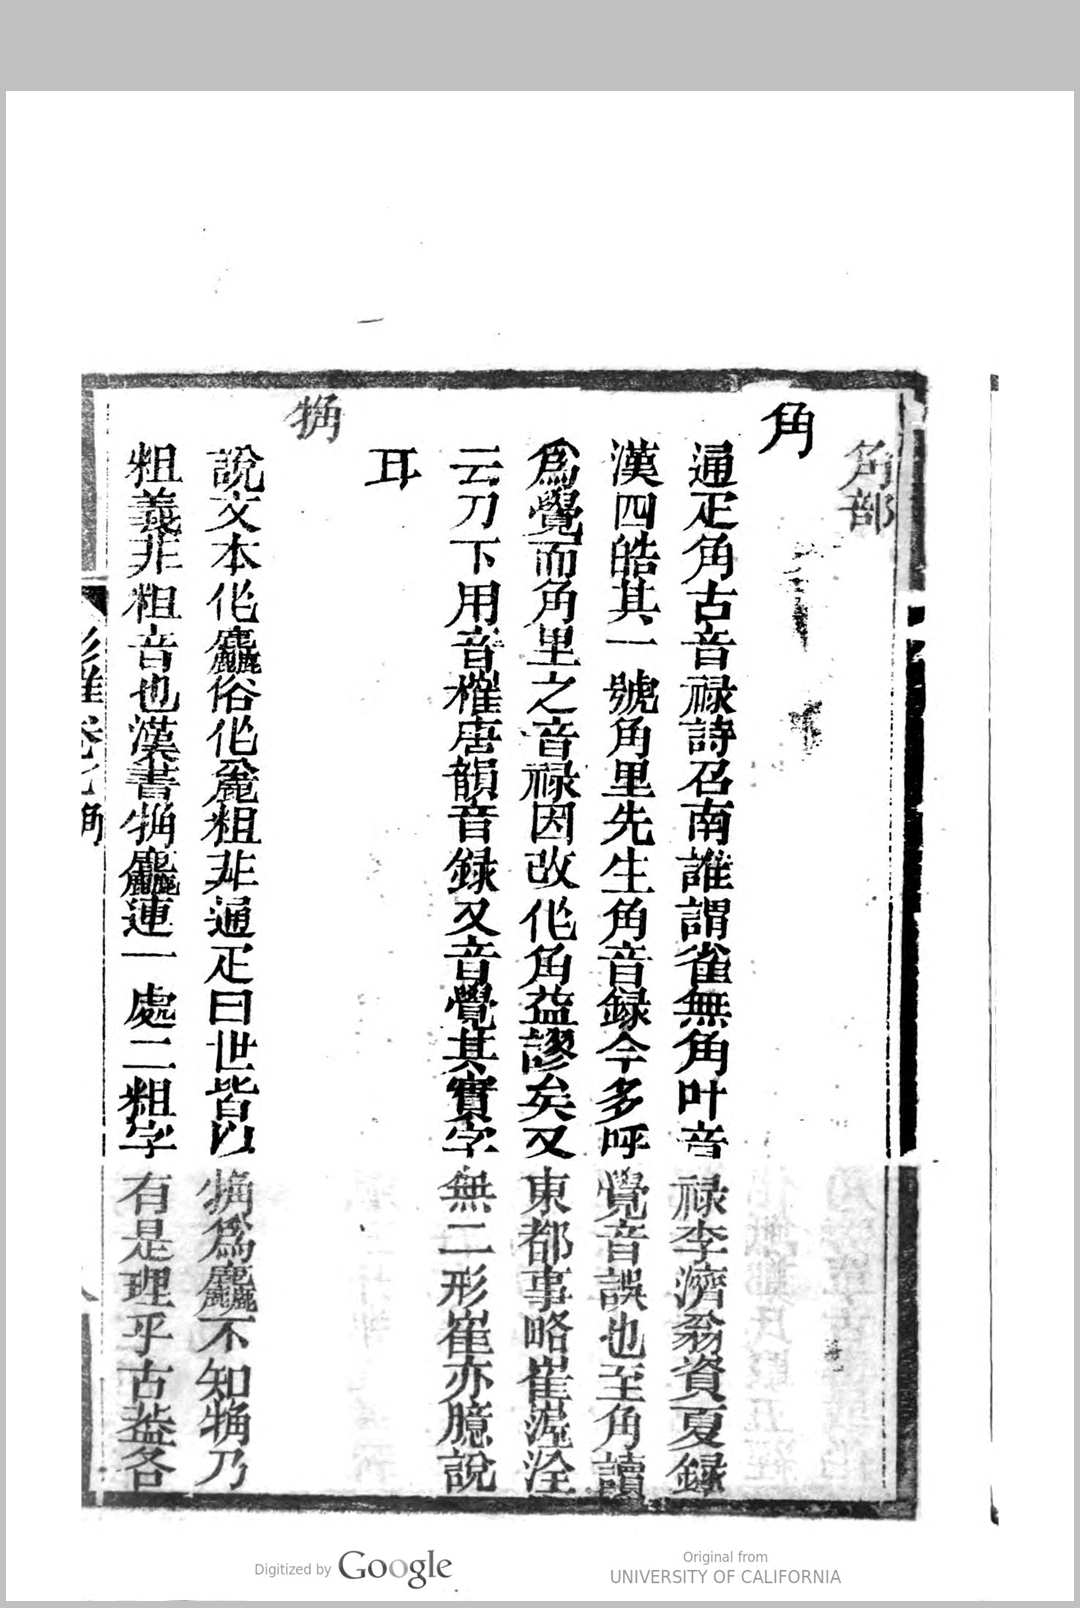 角部
角
通疋角古音禄詩召南誰謂雀無角叶音禄李濟翁資夏録
漢四皓其一號角里先生角音録今多呼覺音誤也至角讀
爲覺而角里之音禄因改作角益謬矣又東都事略崔渥淦
云刀下用音榷唐韻音録又音覺其實字無二形崔亦臆說
耳
觕
說文本作麤俗作麄粗非通疋曰世皆以觕爲麤不知觕乃
粗義非粗音也漢書觕麤連一處二粗字有是理乎古葢各
彡雅 卷七 角
Digitized by Google
Original from
UNIVERSITY OF CALIFORNIA